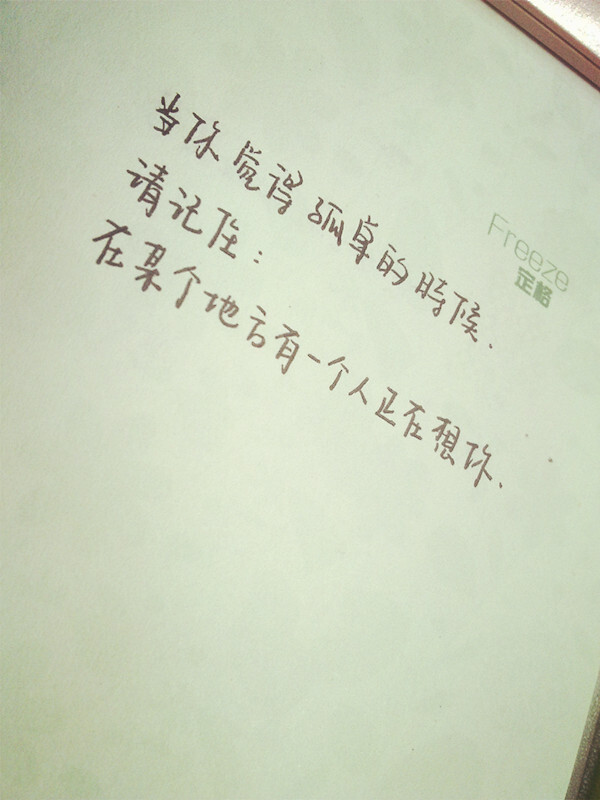 当你觉得孤单的時候.
请记住:
在某个地方有一个人正在想你.
Freeze
定格